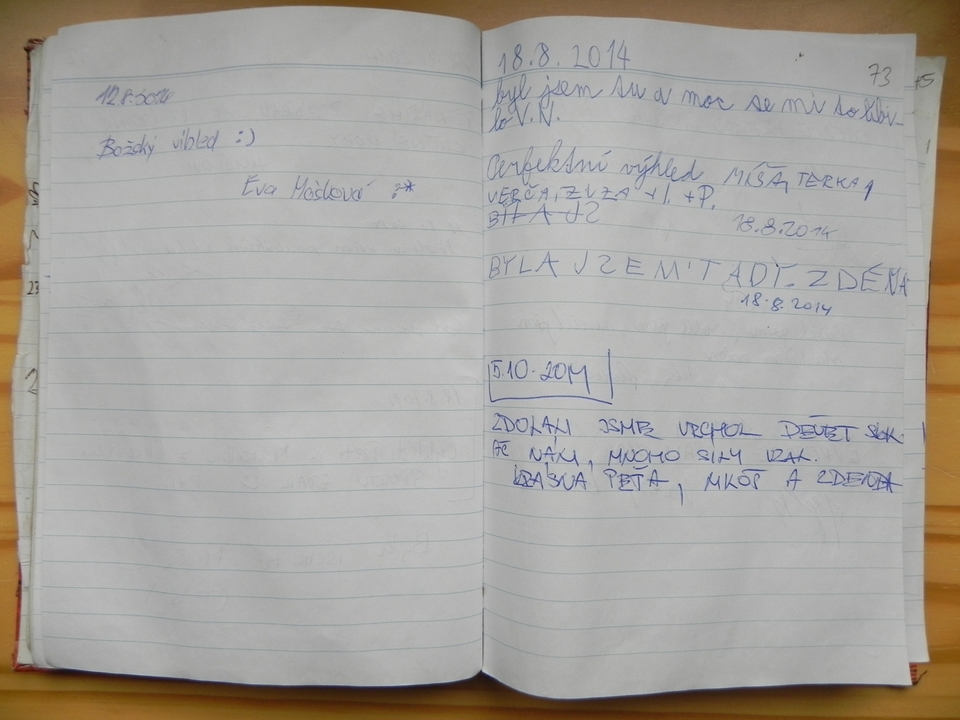 12.8.2014
Božský víhled :)
Eva Mášková :*
73
18.8.2014
byl jsem tu a moc se mi to líbi-
lo V.N.
Perfektní výhled MÍŠA, TERKA,
VERČA, ZUZA +J. +P.
18.8.2014
BYLA JSEM TADY. ZDENA
18.8.2014
5.10.2014
ZDOLALI JSME VRCHOL DEVĚT
NÁM, MNOHO SILY VZAL.
KRÁSNÁ PEŤA, A ZDENDA